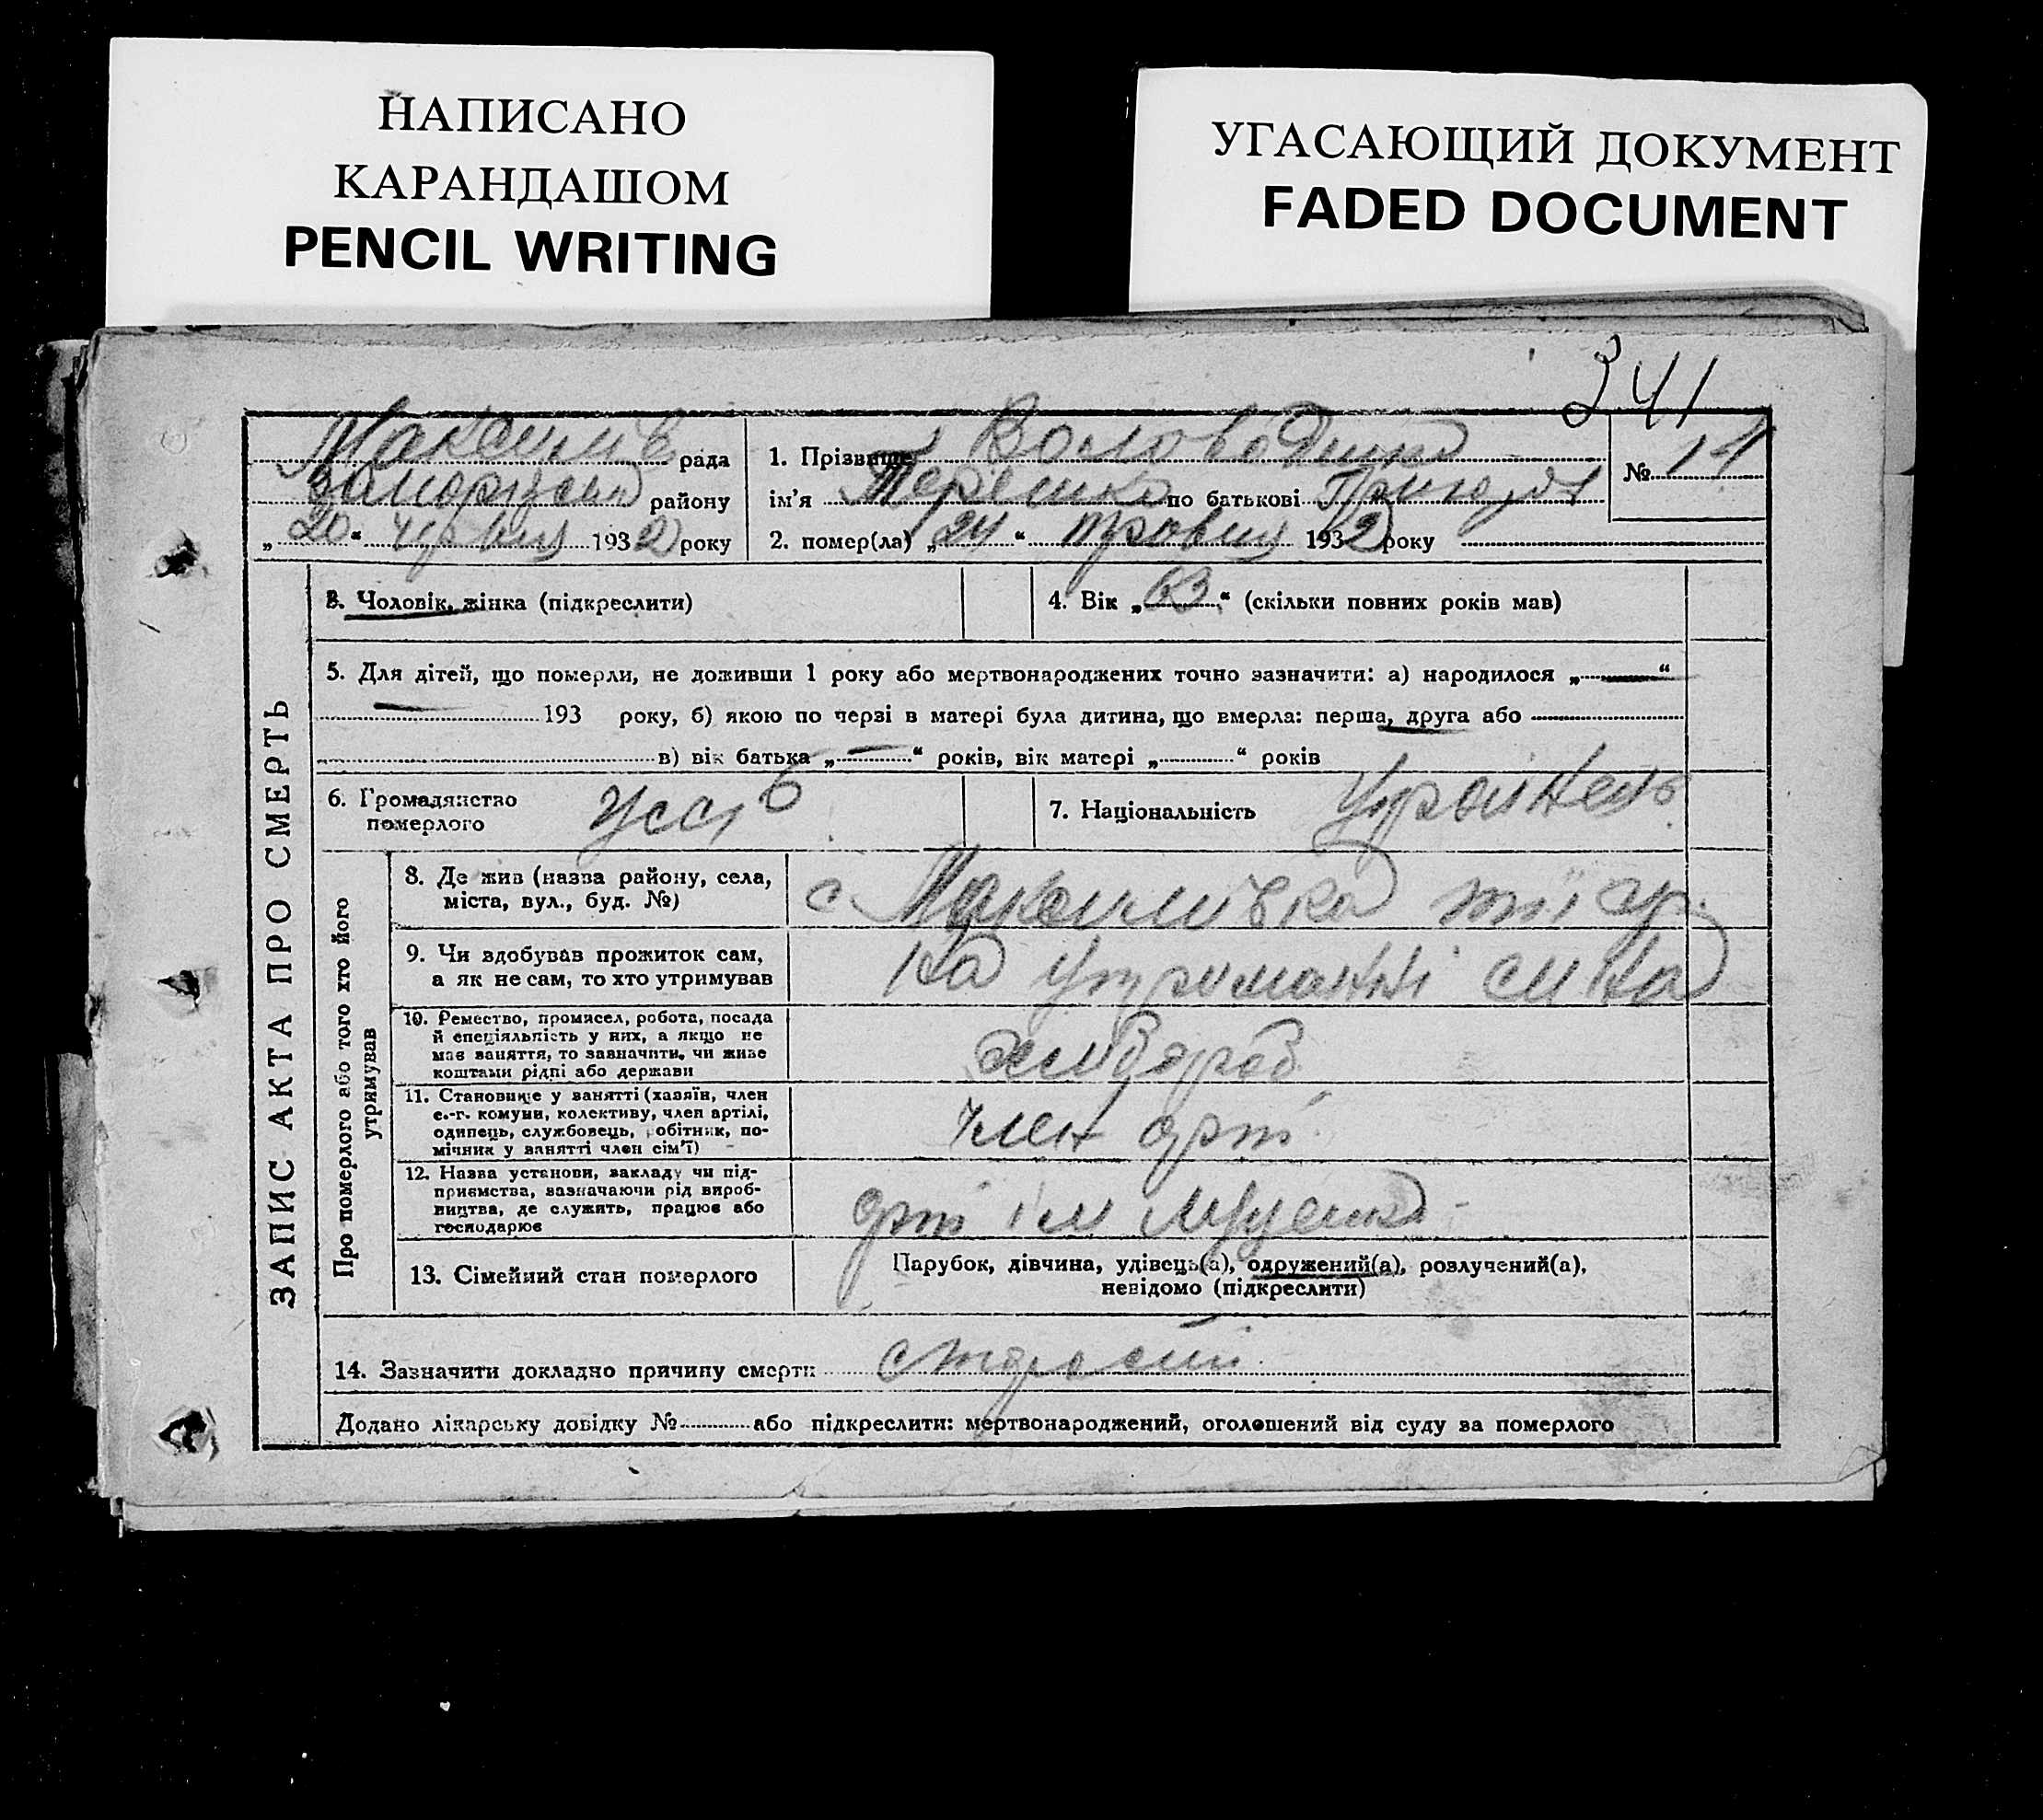 НАПИСАНО
КАРАНДАШОМ
PENCIL WRITING
УГАСАЮЩИЙ ДОКУМЕНТ
FADED DOCUMENT
341
Максимів рада
району
„ 20 “ червня 1932 року
1. Прізвище
ім’я Терешко по батькові
2. помер(ла) „ 24 “ травня 1932 року
№
ЗАПИС АКТА ПРО СМЕРТЬ
3. Чоловік, жінка (підкреслити)
4. Вік „ 63 “ (скільки повних років мав)
5. Для дітей, що померли, не доживши 1 року або мертвонароджених точно зазначити: а) народилося „ — “
— 193 року, б) якою по черзі в матері була дитина, що вмерла: перша, друга або
в) вік батька „ — “ років, вік матері „ “ років
6. Громадянство
померлого
7. Національність Українець
Про померлого або того хто його
утримував
8. Де жив (назва району, села,
міста, вул., буд. №)
с Максимівка
9. Чи здобував прожиток сам,
а як не сам, то хто утримував
на утриманні сина
10. Ремество, промисел, робота, посада
й спеціяльність у них, а якщо не
має заняття, то зазначити, чи живе
коштами рідні або держави
хлібороб
11. Становище у занятті (хазяїн, член
с.-г. комуни, колективу, член артілі,
одинець, службовець, робітник, по-
мічник у занятті член сім’ї)
член арт
12. Назва установи, закладу чи під-
приємства, зазначаючи рід вироб-
ництва, де служить, працює або
господарює
арт ім
13. Сімейний стан померлого
Парубок, дівчина, удівець(а), одружений(а), розлучений(а),
невідомо (підкреслити)
14. Зазначити докладно причину смерти
Додано лікарську довідку № або підкреслити: мертвонароджений, оголошений від суду за померлого